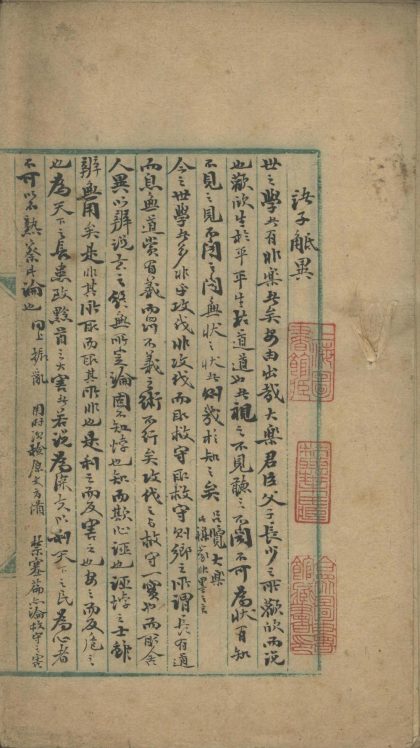 諸子觝異
世之學者有非樂者矣安由出哉大樂君臣父子長少之所歡欣而說
也歡欣生於平平生於道道也者視之不見聽之不聞不可為狀有知
不見之見不聞之聞無狀之狀者則幾於知之矣 呂覽大樂
今之世學者多非乎攻伐非攻伐而取救守取救守則鄉之所謂長有道
而息無道賞有義而罰不義之術不行矣攻伐之與救守一實也而取舍
人異以辨說去之終無所定論固不知悖也知而欺心誣也誣悖之士雖
辨無用矣是非其所取而取其所非也是利之而反害之也安之而反危之
也為天下之長患致黔首之大害者若說為深夫以利天下之民為心者
不可以不熟察此論也 同上振亂 禁塞篇亦論救守之害
上海圖書館藏
合眾圖書館藏書印